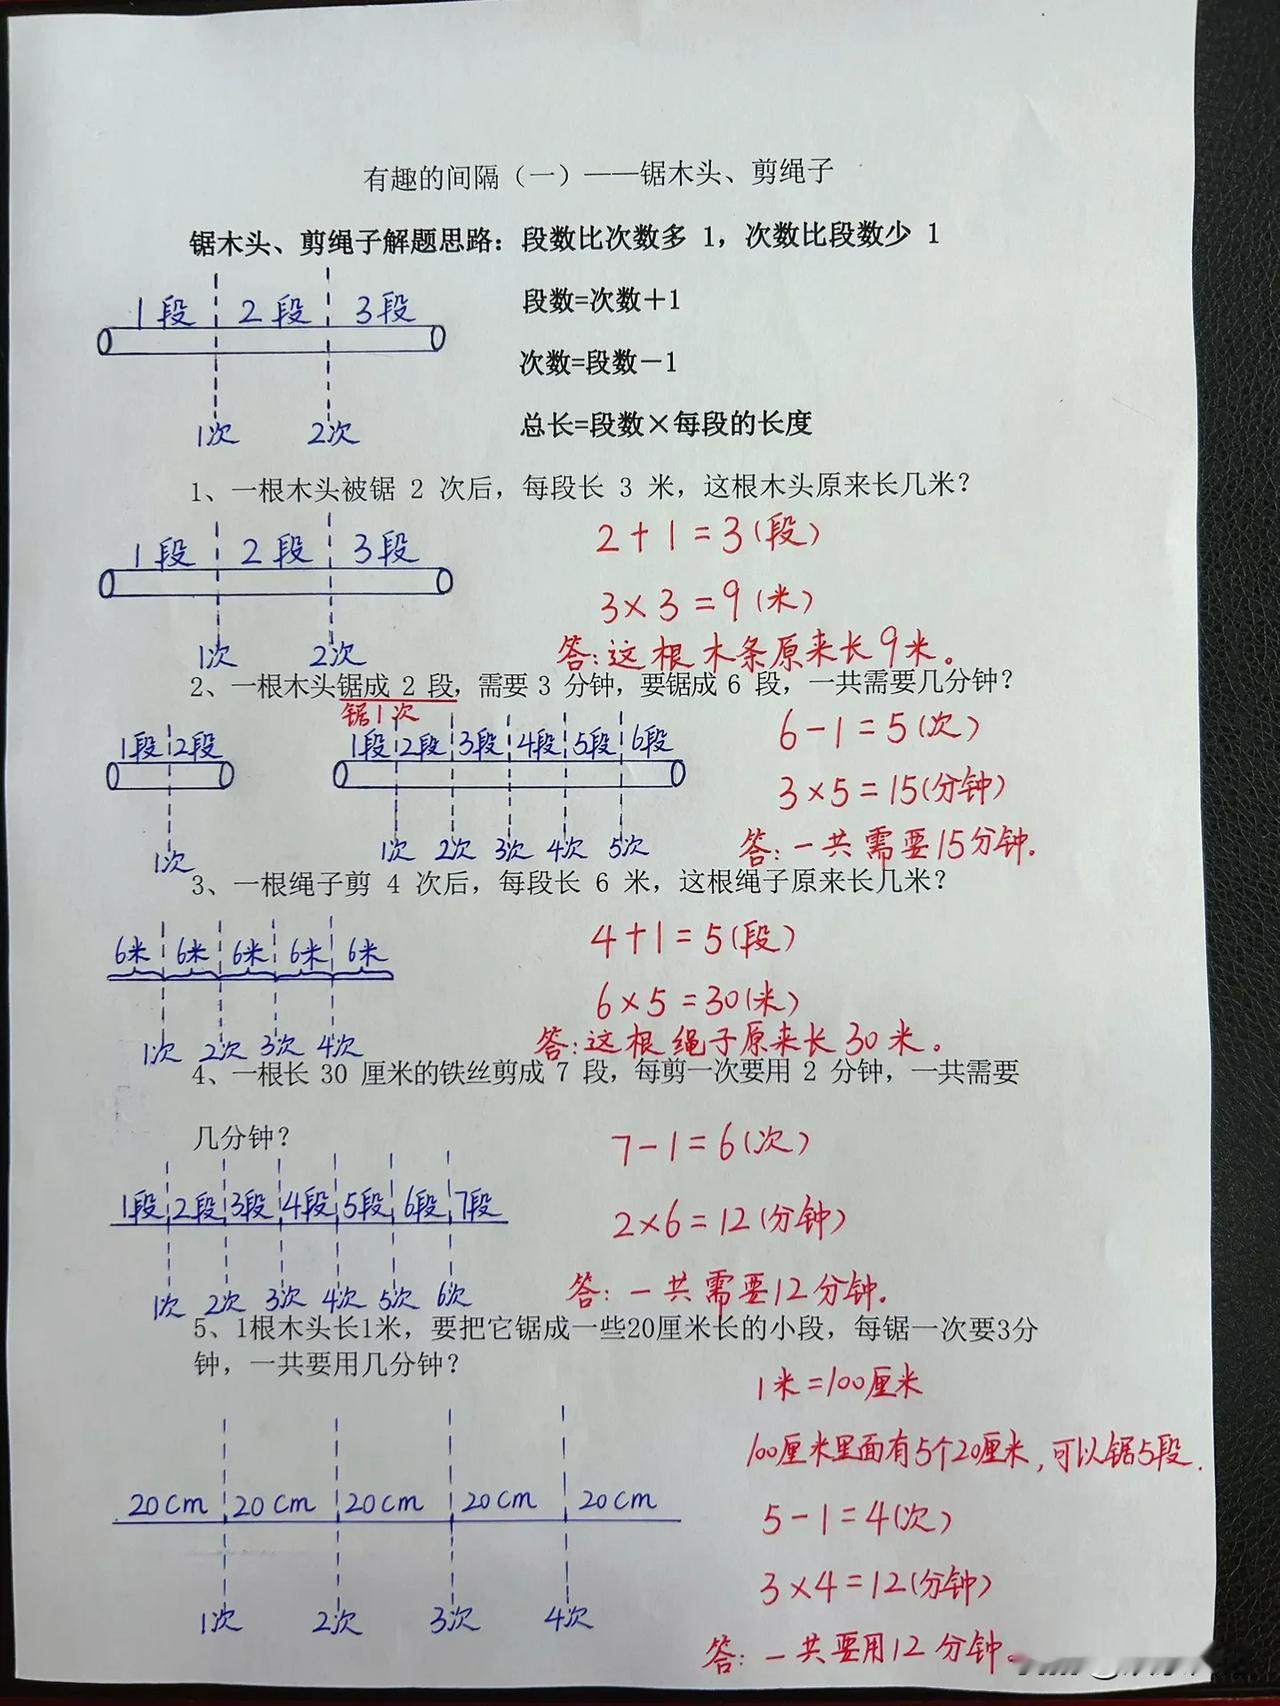 有趣的间隔（一）——锯木头、剪绳子
锯木头、剪绳子解题思路：段数比次数多 1，次数比段数少 1
1段 2段 3段
段数=次数＋1
次数=段数－1
1次 2次
总长=段数×每段的长度
1、一根木头被锯 2 次后，每段长 3 米，这根木头原来长几米？
1段 2段 3段
2+1=3(段)
3×3=9(米)
1次 2次
答:这根木条原来长9米。
2、一根木头锯成 2 段，需要 3 分钟，要锯成 6 段，一共需要几分钟？
锯1次
1段 2段
1段 2段 3段 4段 5段 6段
6-1=5(次)
3×5=15(分钟)
1次
1次 2次 3次 4次 5次
答:一共需要15分钟.
3、一根绳子剪 4 次后，每段长 6 米，这根绳子原来长几米？
6米 6米 6米 6米 6米
4+1=5(段)
6×5=30(米)
1次 2次 3次 4次
答:这根绳子原来长30米.
4、一根长 30 厘米的铁丝剪成 7 段，每剪一次要用 2 分钟，一共需要
几分钟？
7-1=6(次)
1段 2段 3段 4段 5段 6段 7段
2×6=12(分钟)
1次 2次 3次 4次 5次 6次
答:一共需要12分钟.
5、1根木头长1米，要把它锯成一些20厘米长的小段，每锯一次要3分
钟，一共要用几分钟？
1米=100厘米
100厘米里面有5个20厘米,可以锯5段.
20cm 20cm 20cm 20cm 20cm
5-1=4(次)
3×4=12(分钟)
1次 2次 3次 4次
答:一共要用12分钟。